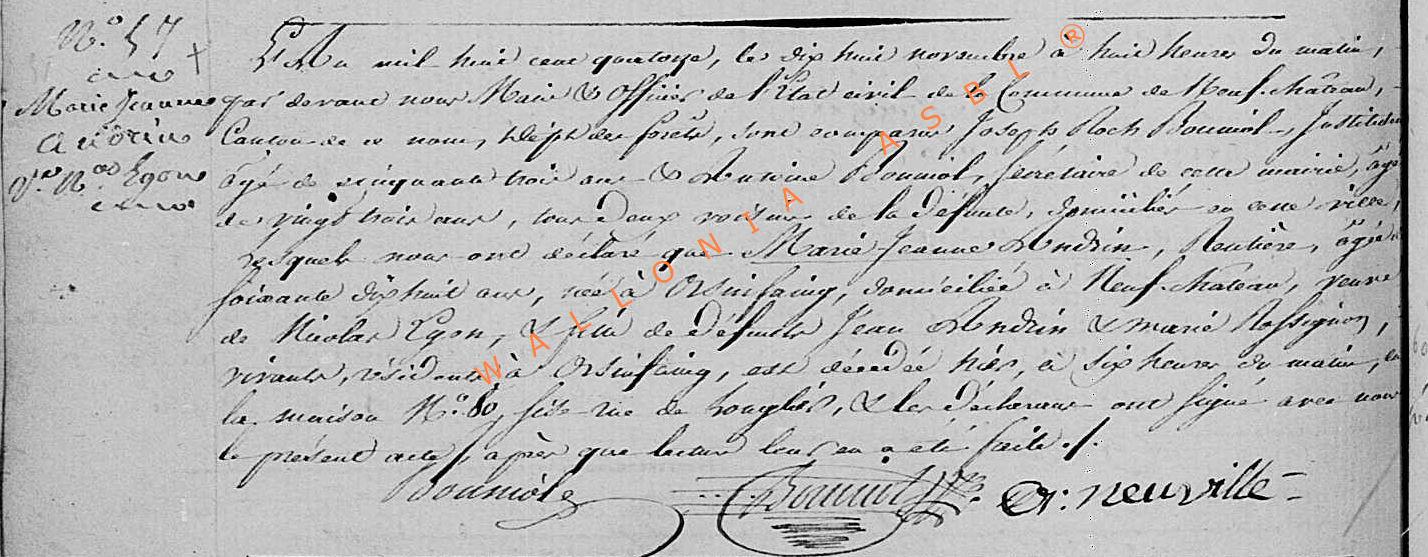 N.º 57
Marie Jeanne
Andrin
V.ve N.as Egon
L'An mil huit cent quatorze, le dix huit novembre à huit heures du matin,
par devant nous Maire & Officier de l'Etat civil de la Commune de Neuf-château,
Canton de ce nom, dépt des forêts, sont comparus Joseph Roch Bouniol, Instituteur
âgé de cinquante trois ans & Antoine Bouniol, Sécrétaire de cette mairie, âgé
de vingt trois ans, tous deux voisins de la défunte, domiciliés en cette ville,
lesquels nous ont déclaré que Marie Jeanne Andrin, Rentière, âgée de
soixante dix huit ans, née à Orsinfaing, domiciliée à Neuf-château, veuve
de Nicolas Egon, & fille de défunts Jean Andrin & marie Rossignon,
vivants, résidents à Orsinfaing, est décédée hier, à six heures du matin, en
la maison N.º 80, sise rue de Longlier, & les déclarans ont signé avec nous
le présent acte, après que lecture leur en a été faite ./.
Bouniol Bouniol A: Neuville
WALLONIA ASBL ®